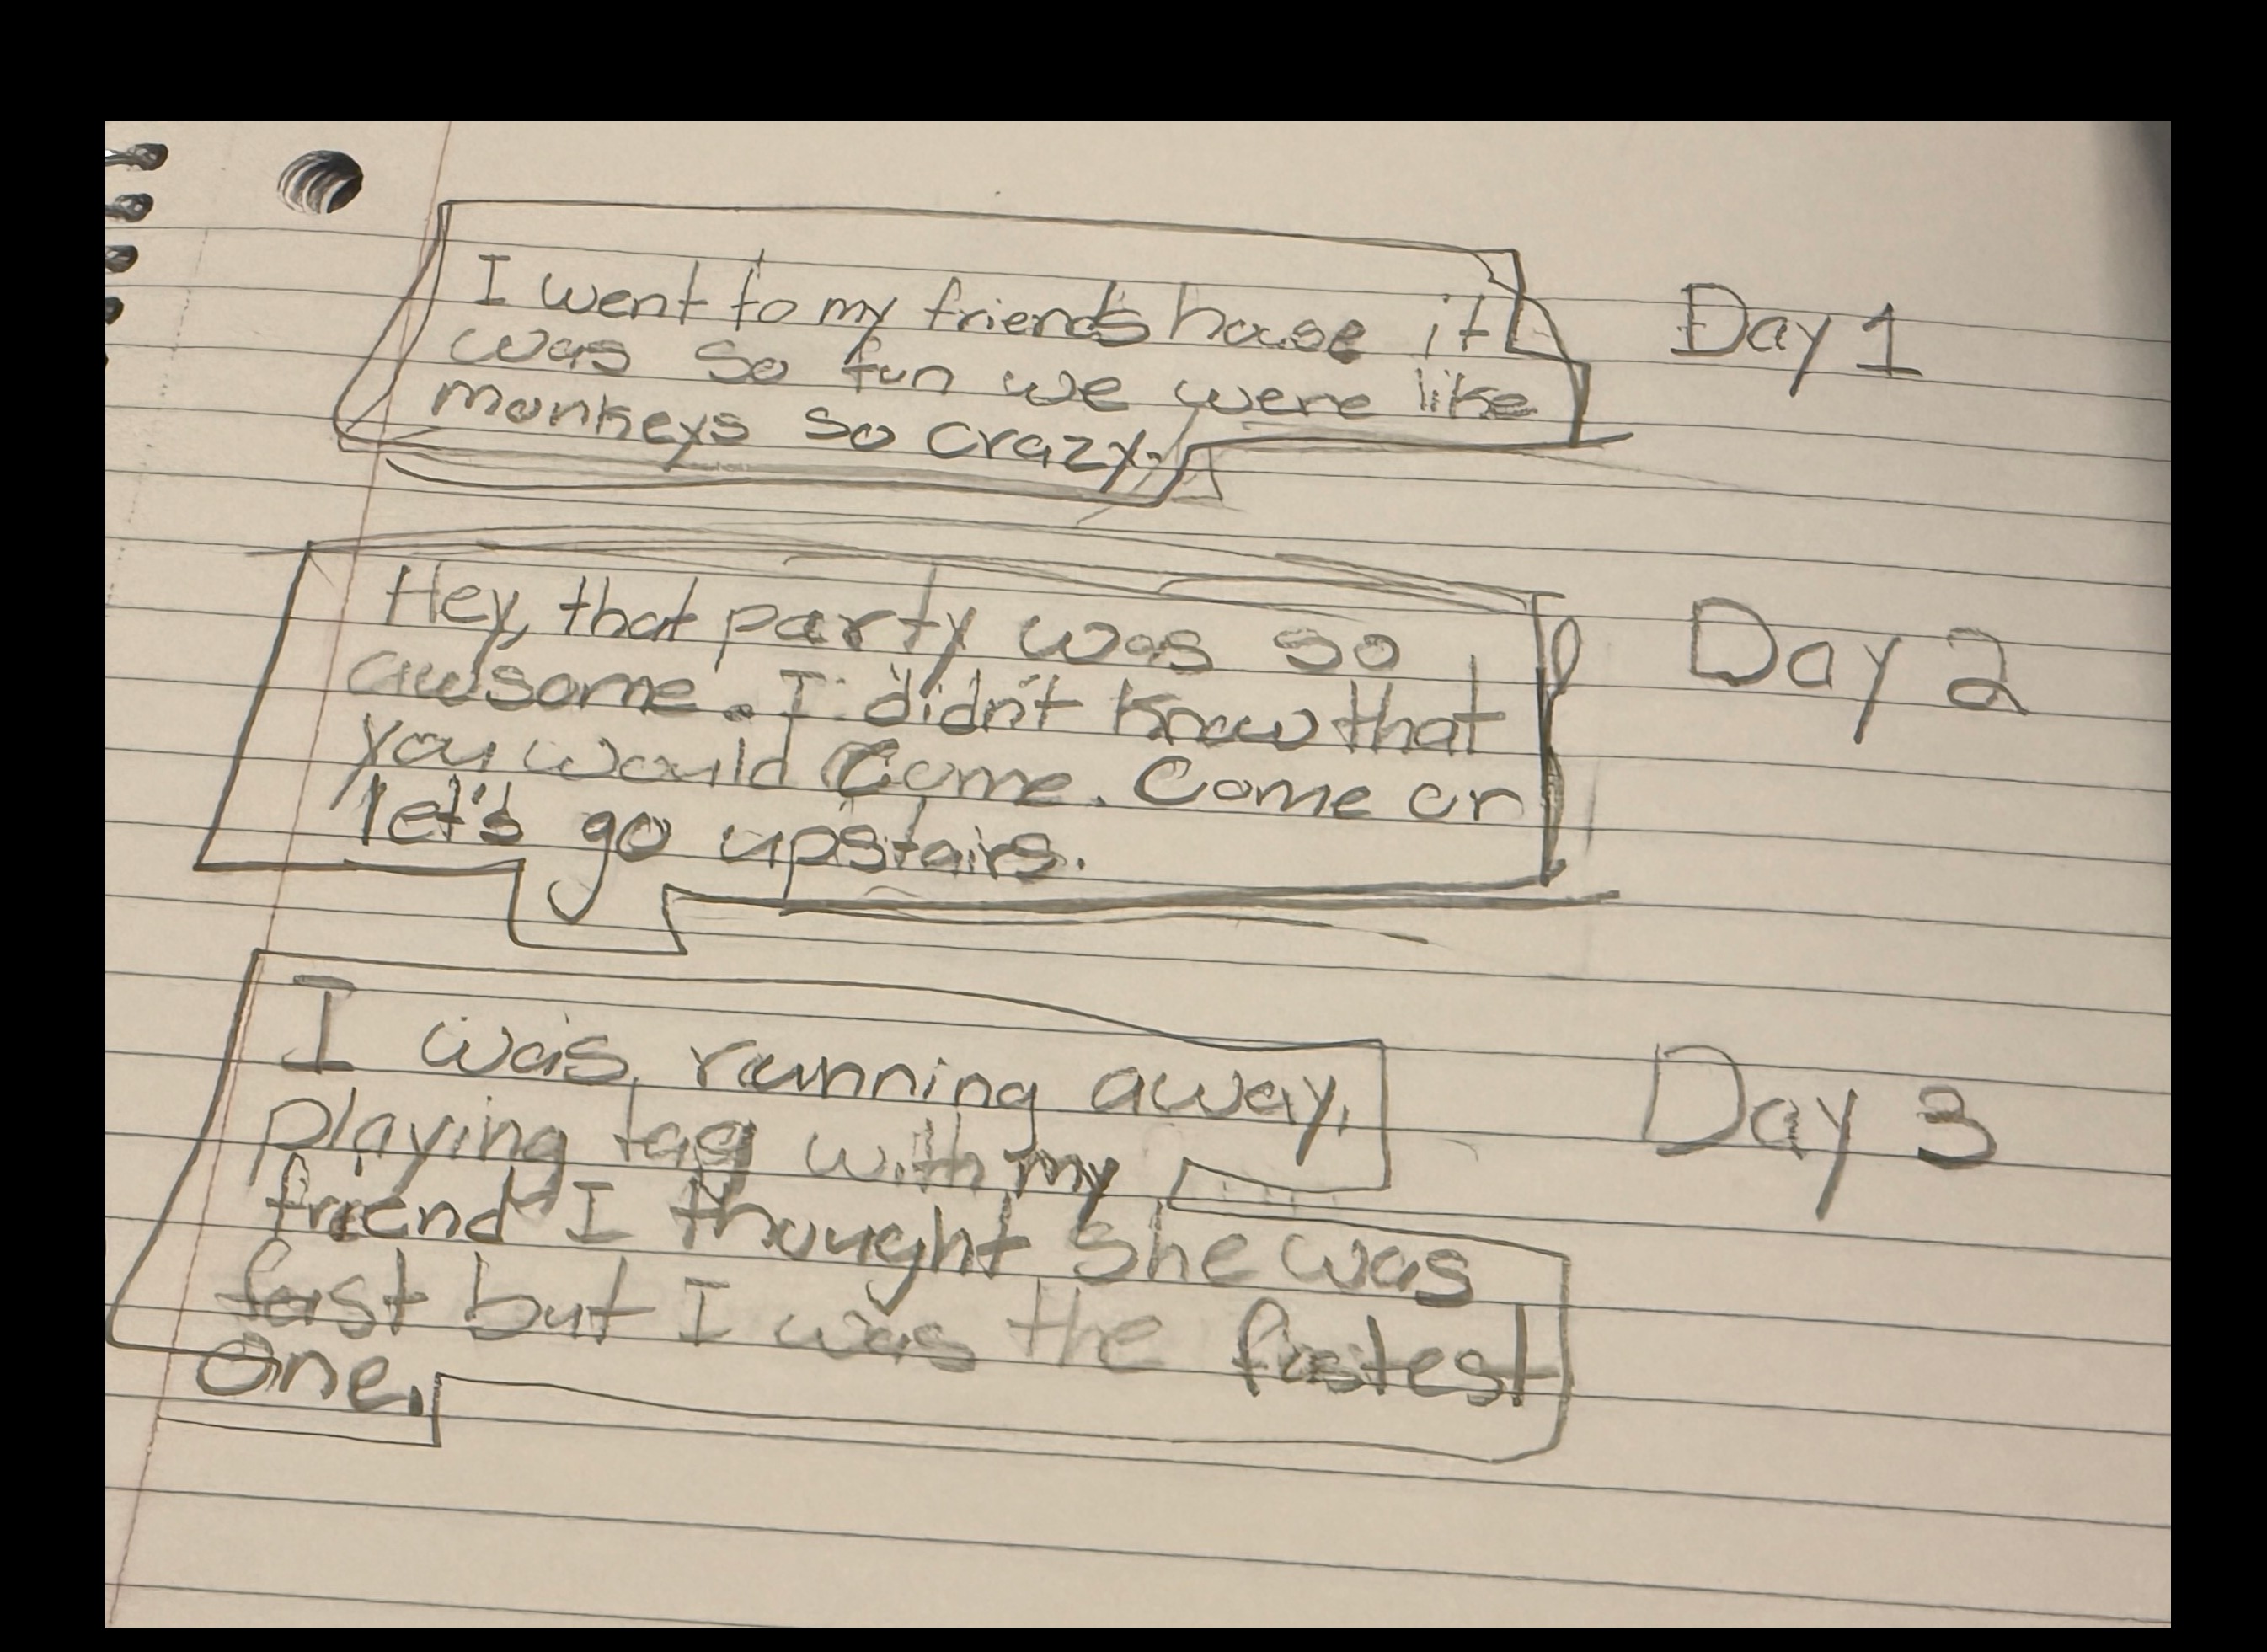 I went to my friends house it
was so fun we were like
monkeys so crazy.
Day 1
Hey, that party was so
awsome. I didn't know that
you would come. Come on
let's go upstairs.
Day 2
I was running away,
playing tag with my
friend I thought she was
fast but I was the fastest
One.
Day 3